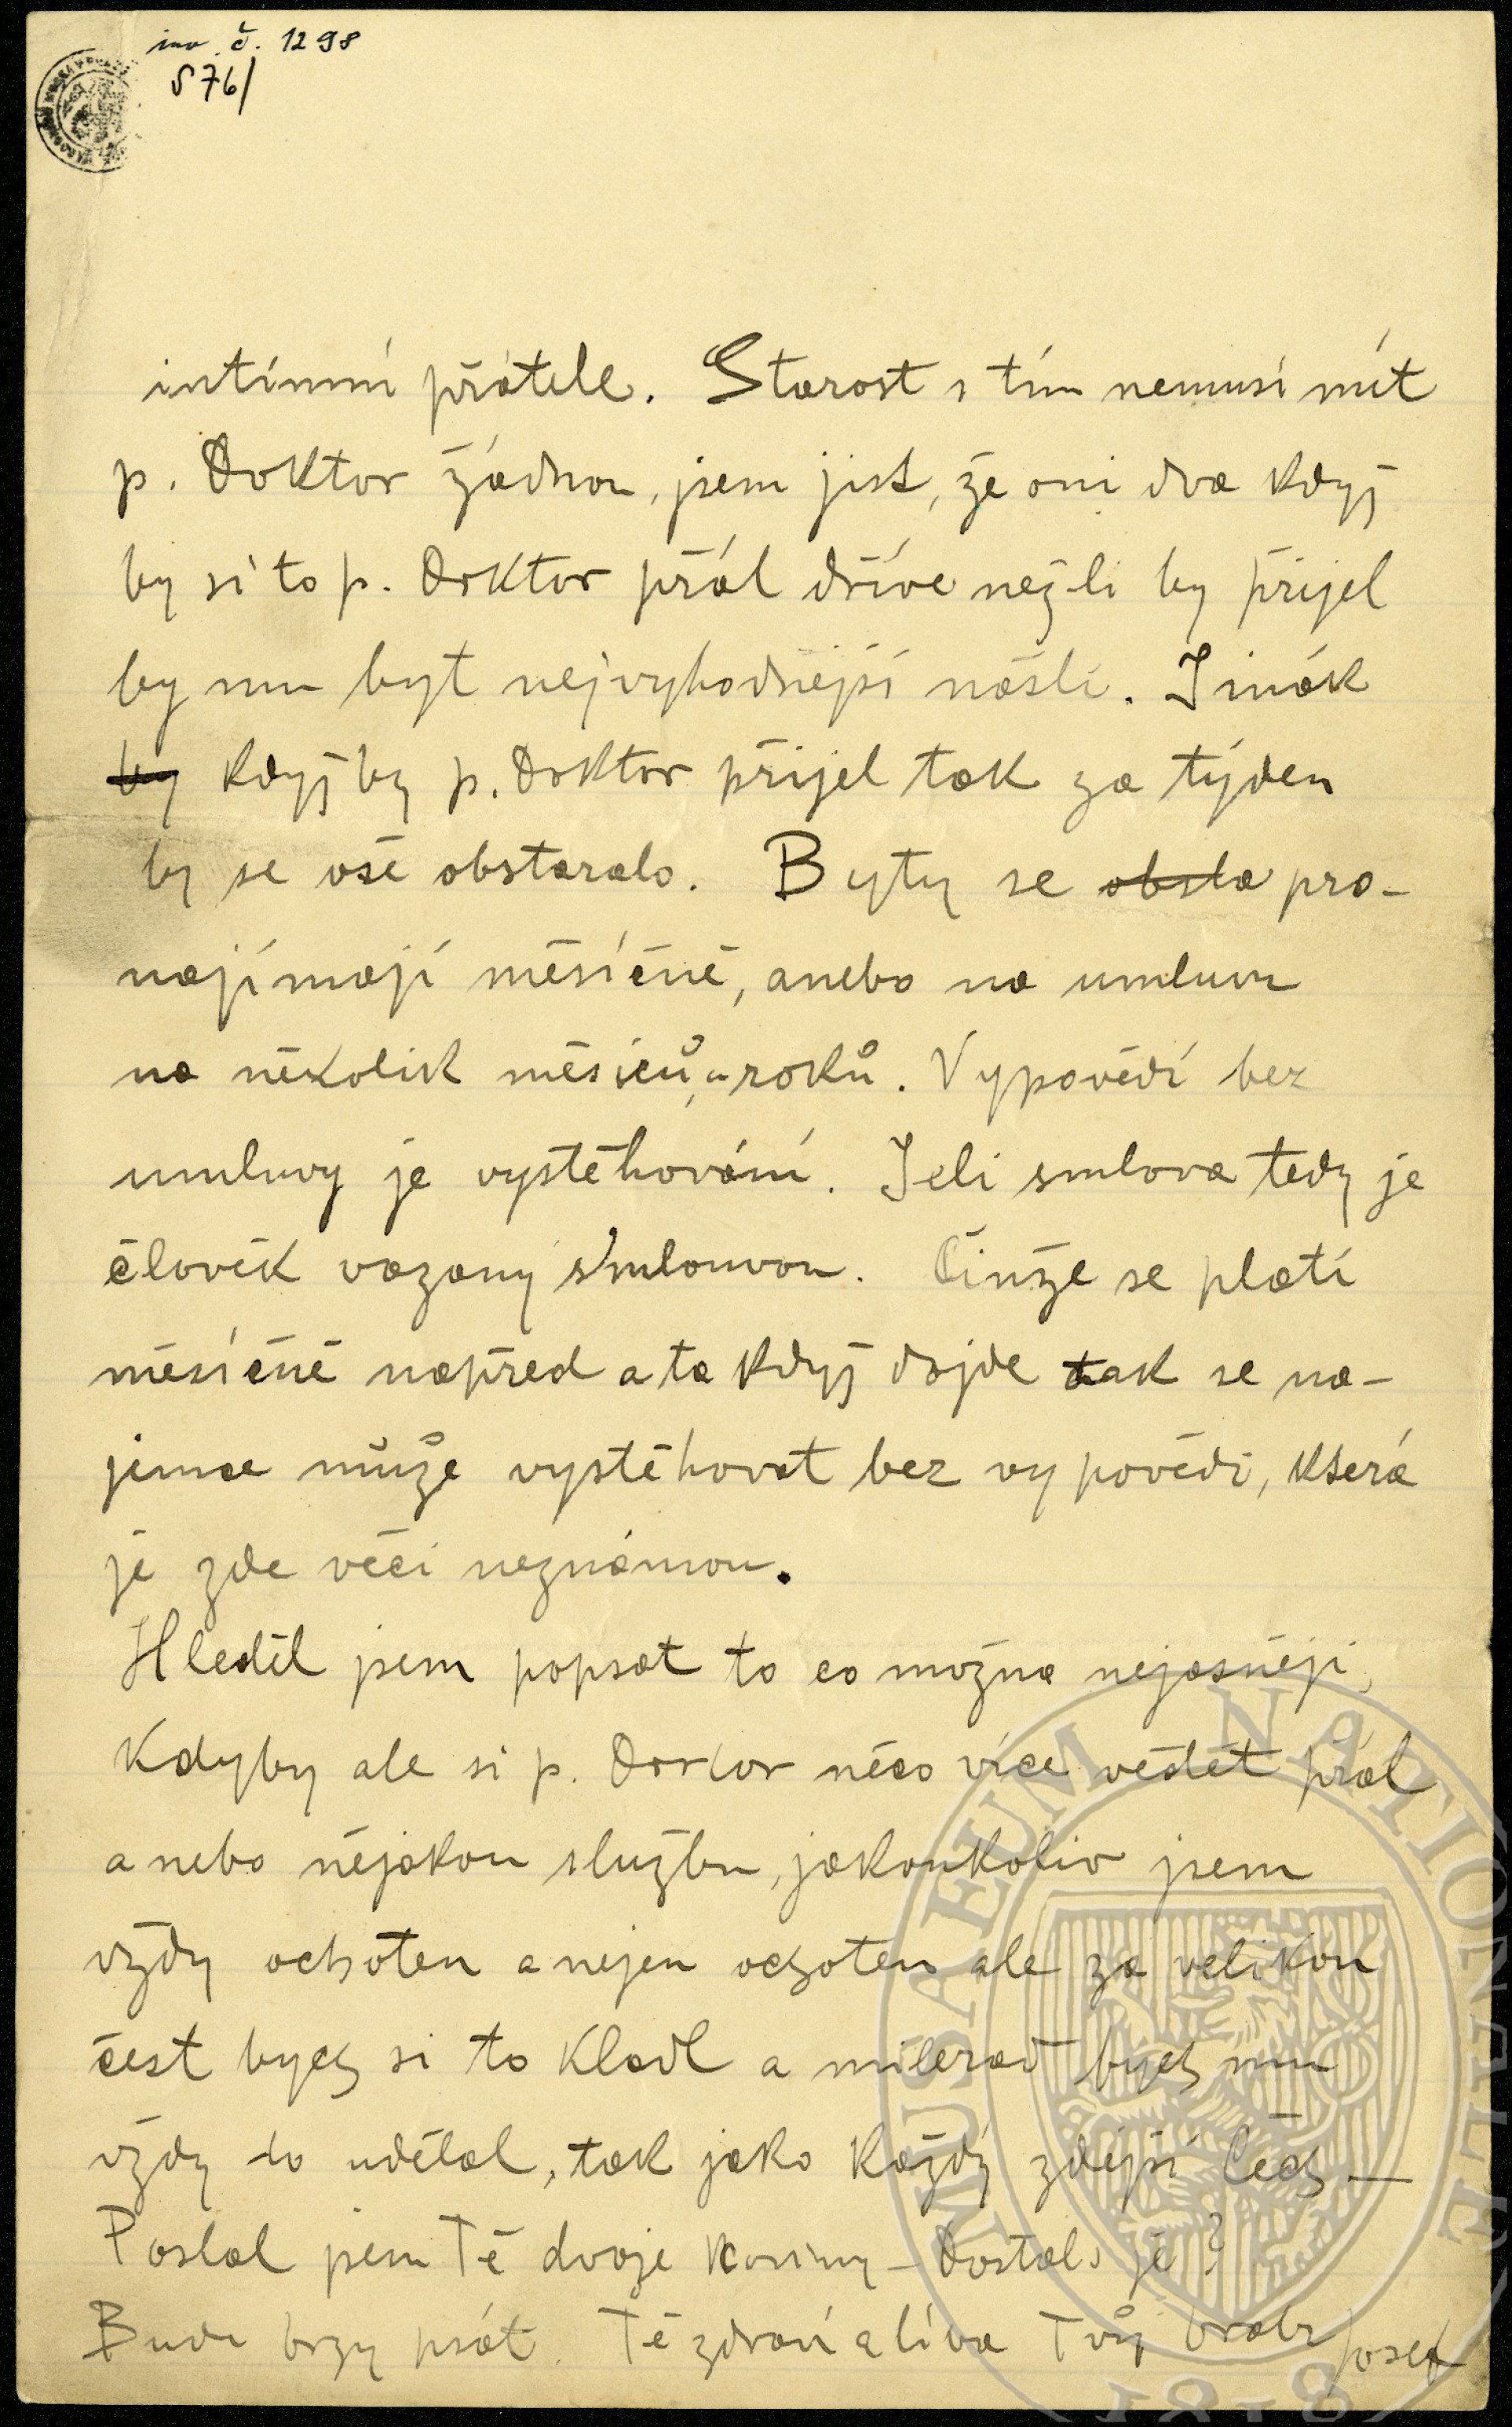 inv. č. 1298
S 76/
intímní přátele. Starost s tím nemusí mít
p. Doktor žádnou, jsem jist, že oni dva když
by si to p. Doktor přál dříve nežli by přijel
by mu byt nejvyhodnější našli. Jinák
by když by p. Doktor přijel tak za týden
by se vše obstaralo. Byty se obsta pro-
najímají měsíčně, anebo na umluvu
na několik měsíců, roků. Vypovědí bez
umluvy je vystěhování. Jeli smlova tedy je
člověk vazaný smlouvou. Činže se platí
měsíčně napřed a ta když dojde tak se na-
jemce může vystěhovat bez vypovědi, která
je zde věci neznámou.
Hleděl jsem popsat to co možna nejasněji,
Kdyby ale si p. Doktor něco více vědět přál
anebo nějakou službu, jakoukoliv jsem
vždy ochoten a nejen ochoten ale za velikou
čest bych si to kladl a milerad bych mu
vždy to udělal, tak jako každý zdejší Čech —
Poslal jsem Tě dvoje noviny — Dostals je?
Budu brzy psát. Tě zdraví a líba Tvůj bratr Josef
MUSAEUM NATIONALE
1818